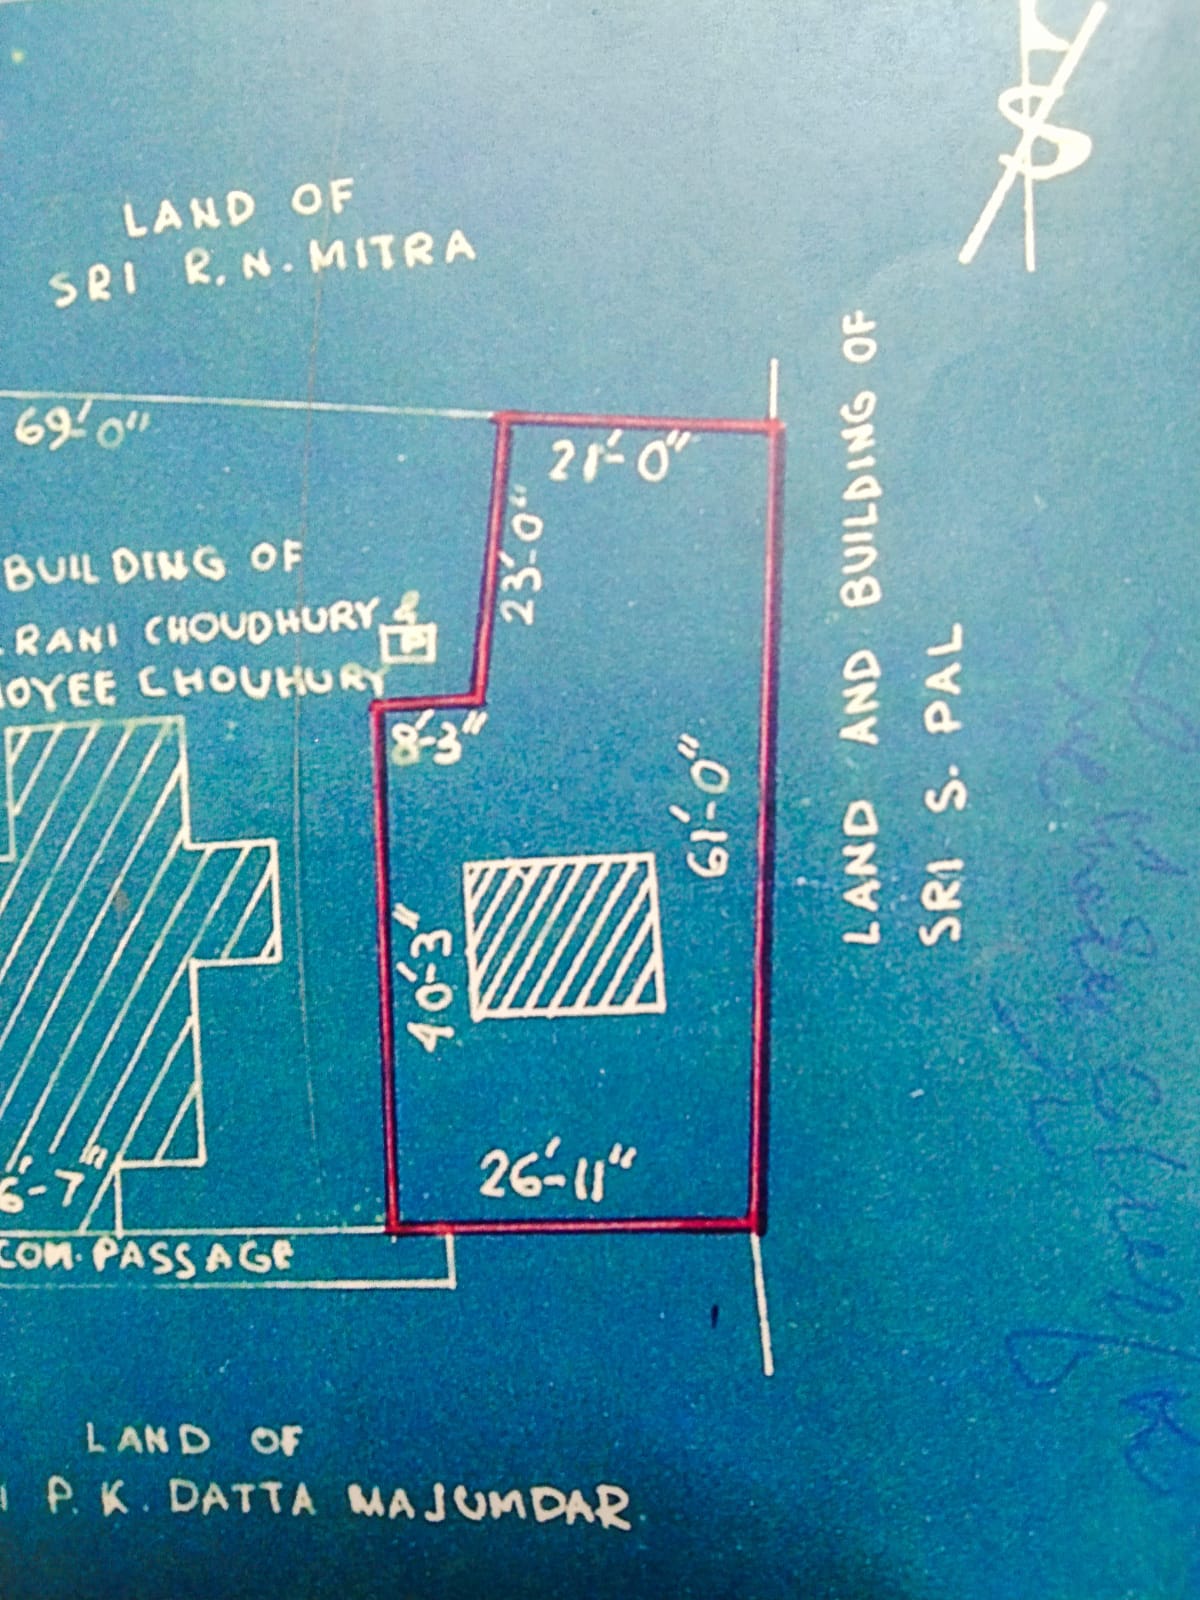 LAND OF
SRI R.N. MITRA
69'-0"
21'-0"
23'-0"
BUILDING OF
RANI CHOUDHURY &
OYEE CHOUHURY
8'-3"
61'-0"
40'-3"
26'-11"
6'-7"
COM. PASSAGE
LAND AND BUILDING OF
SRI S. PAL
LAND OF
P. K. DATTA MAJUMDAR